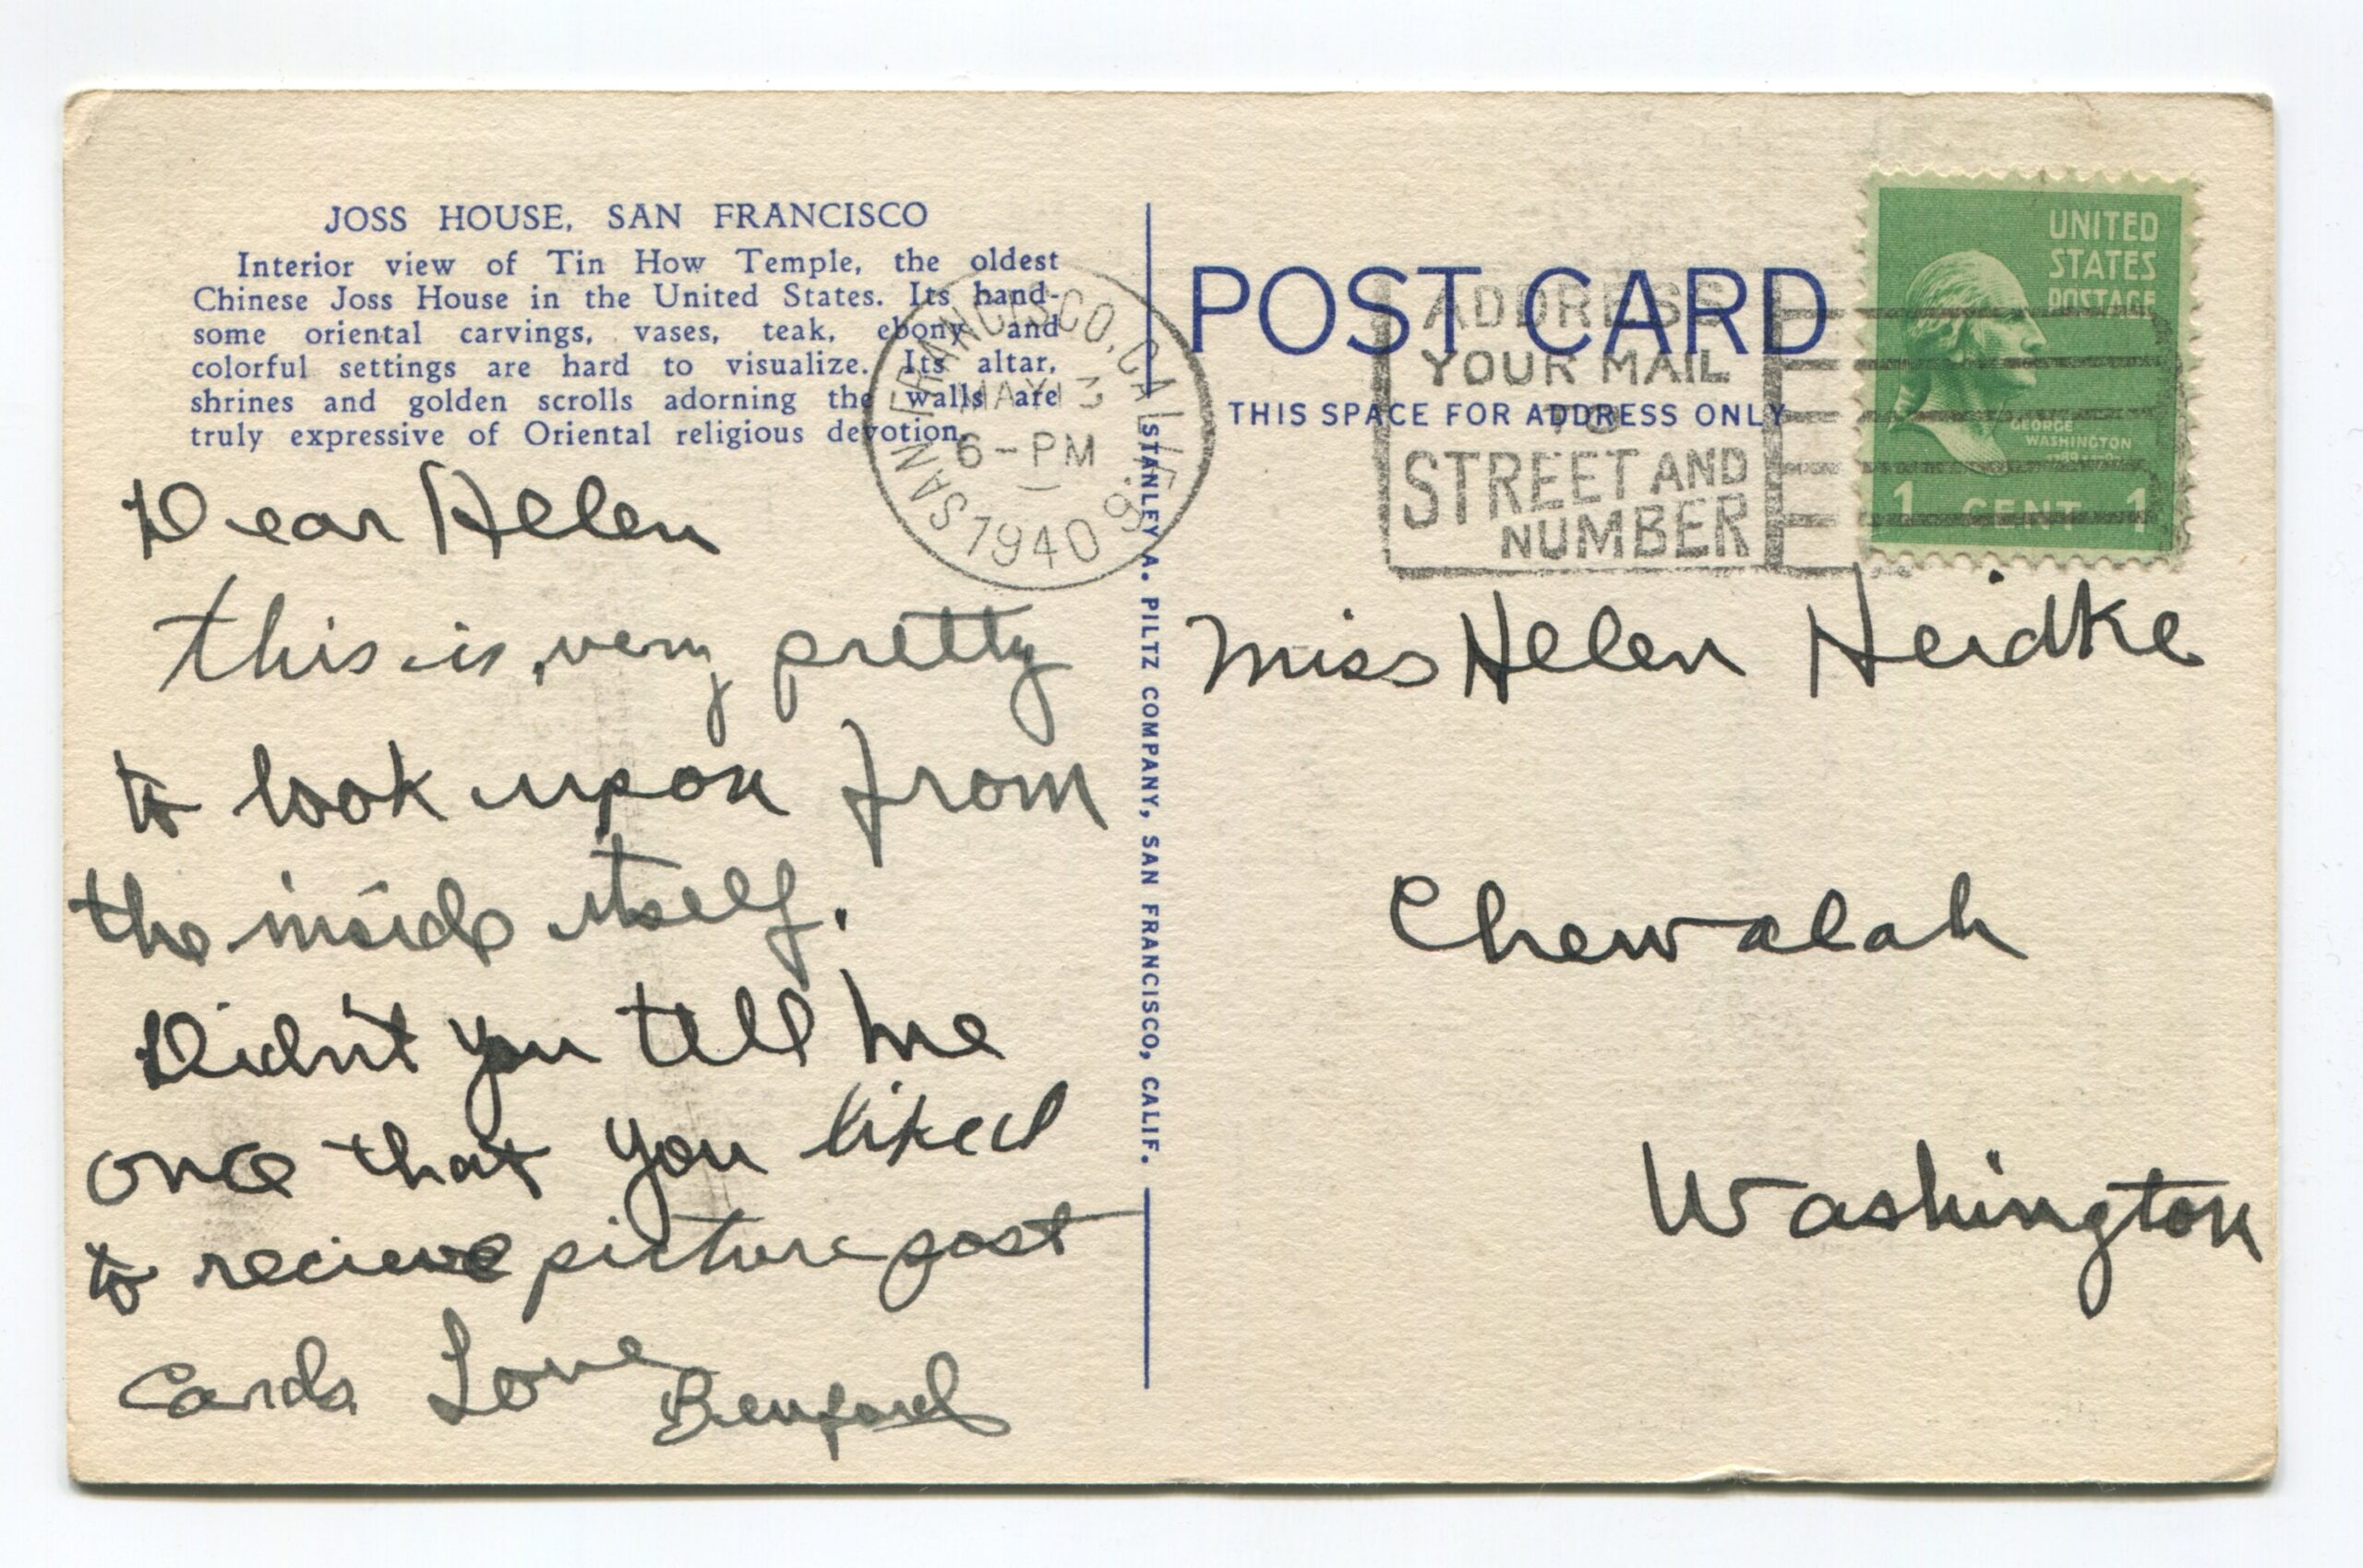 JOSS HOUSE, SAN FRANCISCO
Interior view of Tin How Temple, the oldest
Chinese Joss House in the United States. Its hand-
some oriental carvings, vases, teak, ebony and
colorful settings are hard to visualize. Its altar,
shrines and golden scrolls adorning the walls are
truly expressive of Oriental religious devotion.
Dear Helen
this is very pretty
to look upon from
the inside itself.
Didn't you tell me
once that you liked
to recieve picture post
Cards Love
Benford
STANLEY A. PILTZ COMPANY, SAN FRANCISCO, CALIF.
SAN FRANCISCO, CALIF. 9
MAY 13
6-PM
1940
POST CARD
THIS SPACE FOR ADDRESS ONLY
ADDRESS
YOUR MAIL
TO
STREET AND
NUMBER
UNITED
STATES
POSTAGE
GEORGE
WASHINGTON
1 CENT 1
Miss Helen Heidke
Chewalah
Washington